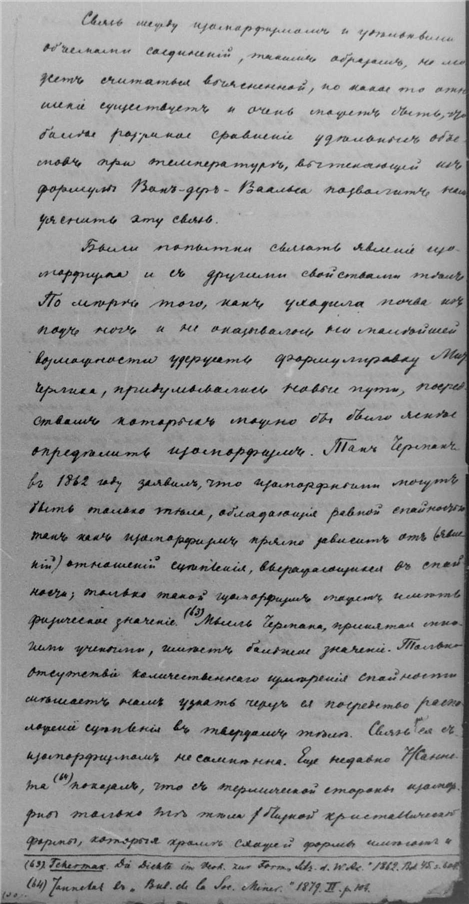 Связь между изоморфизмомъ и удѣльными
объемами соединеній, такимъ образомъ, не мо
жетъ считаться выясненной, но какое то отно
шеніе существуетъ и очень можетъ быть, что
болѣе разумное сравненіе удѣльныхъ объе
мовъ при температурѣ, вытекающей изъ
формулы Ванъ-деръ-Ваальса позволитъ намъ
уяснить эту связь.
Были попытки связать явленіе изо
морфизма и съ другими свойствами тѣлъ.
По мѣрѣ того, какъ уходила почва изъ
подъ ногъ и не оказывалось ни малѣйшей
возможности удержать формулировку Мит
черлиха, придумывались новые пути, посред
ствомъ которыхъ можно бы было яснѣе
опредѣлить изоморфизмъ. Такъ Чермакъ
въ 1862 году заявилъ, что изоморфными могутъ
быть только тѣла, обладающія равной спайностью
такъ какъ изоморфизмъ прямо зависитъ отъ (явле
ній) отношеній сцѣпленія, выражающихся въ спай
ности; только такой изоморфизмъ можетъ имѣть
физическое значеніе. (63) Мысль Чермака, принятая мно
гими учеными, имѣетъ большое значеніе. Только
отсутствіе количественнаго измѣренія спайности
мѣшаетъ намъ узнать черезъ ея посредство распо
ложеніе сцѣпленія въ твердомъ тѣлѣ. Связь ея съ
изоморфизмомъ несомнѣнна. Еще недавно Жанне
та (64) показалъ, что съ термической стороны изомор
фны только тѣ тѣла близкой кристаллической
формы, которыя кромѣ сходной формы имѣютъ и
(63) Tschermak. Die Dichte im Verh. zur Form. Sitz. d. W. Ac. 1862. Bd. 45.
(64) Jannetaz въ „Bul. de la Soc. Miner." 1879. II. p.